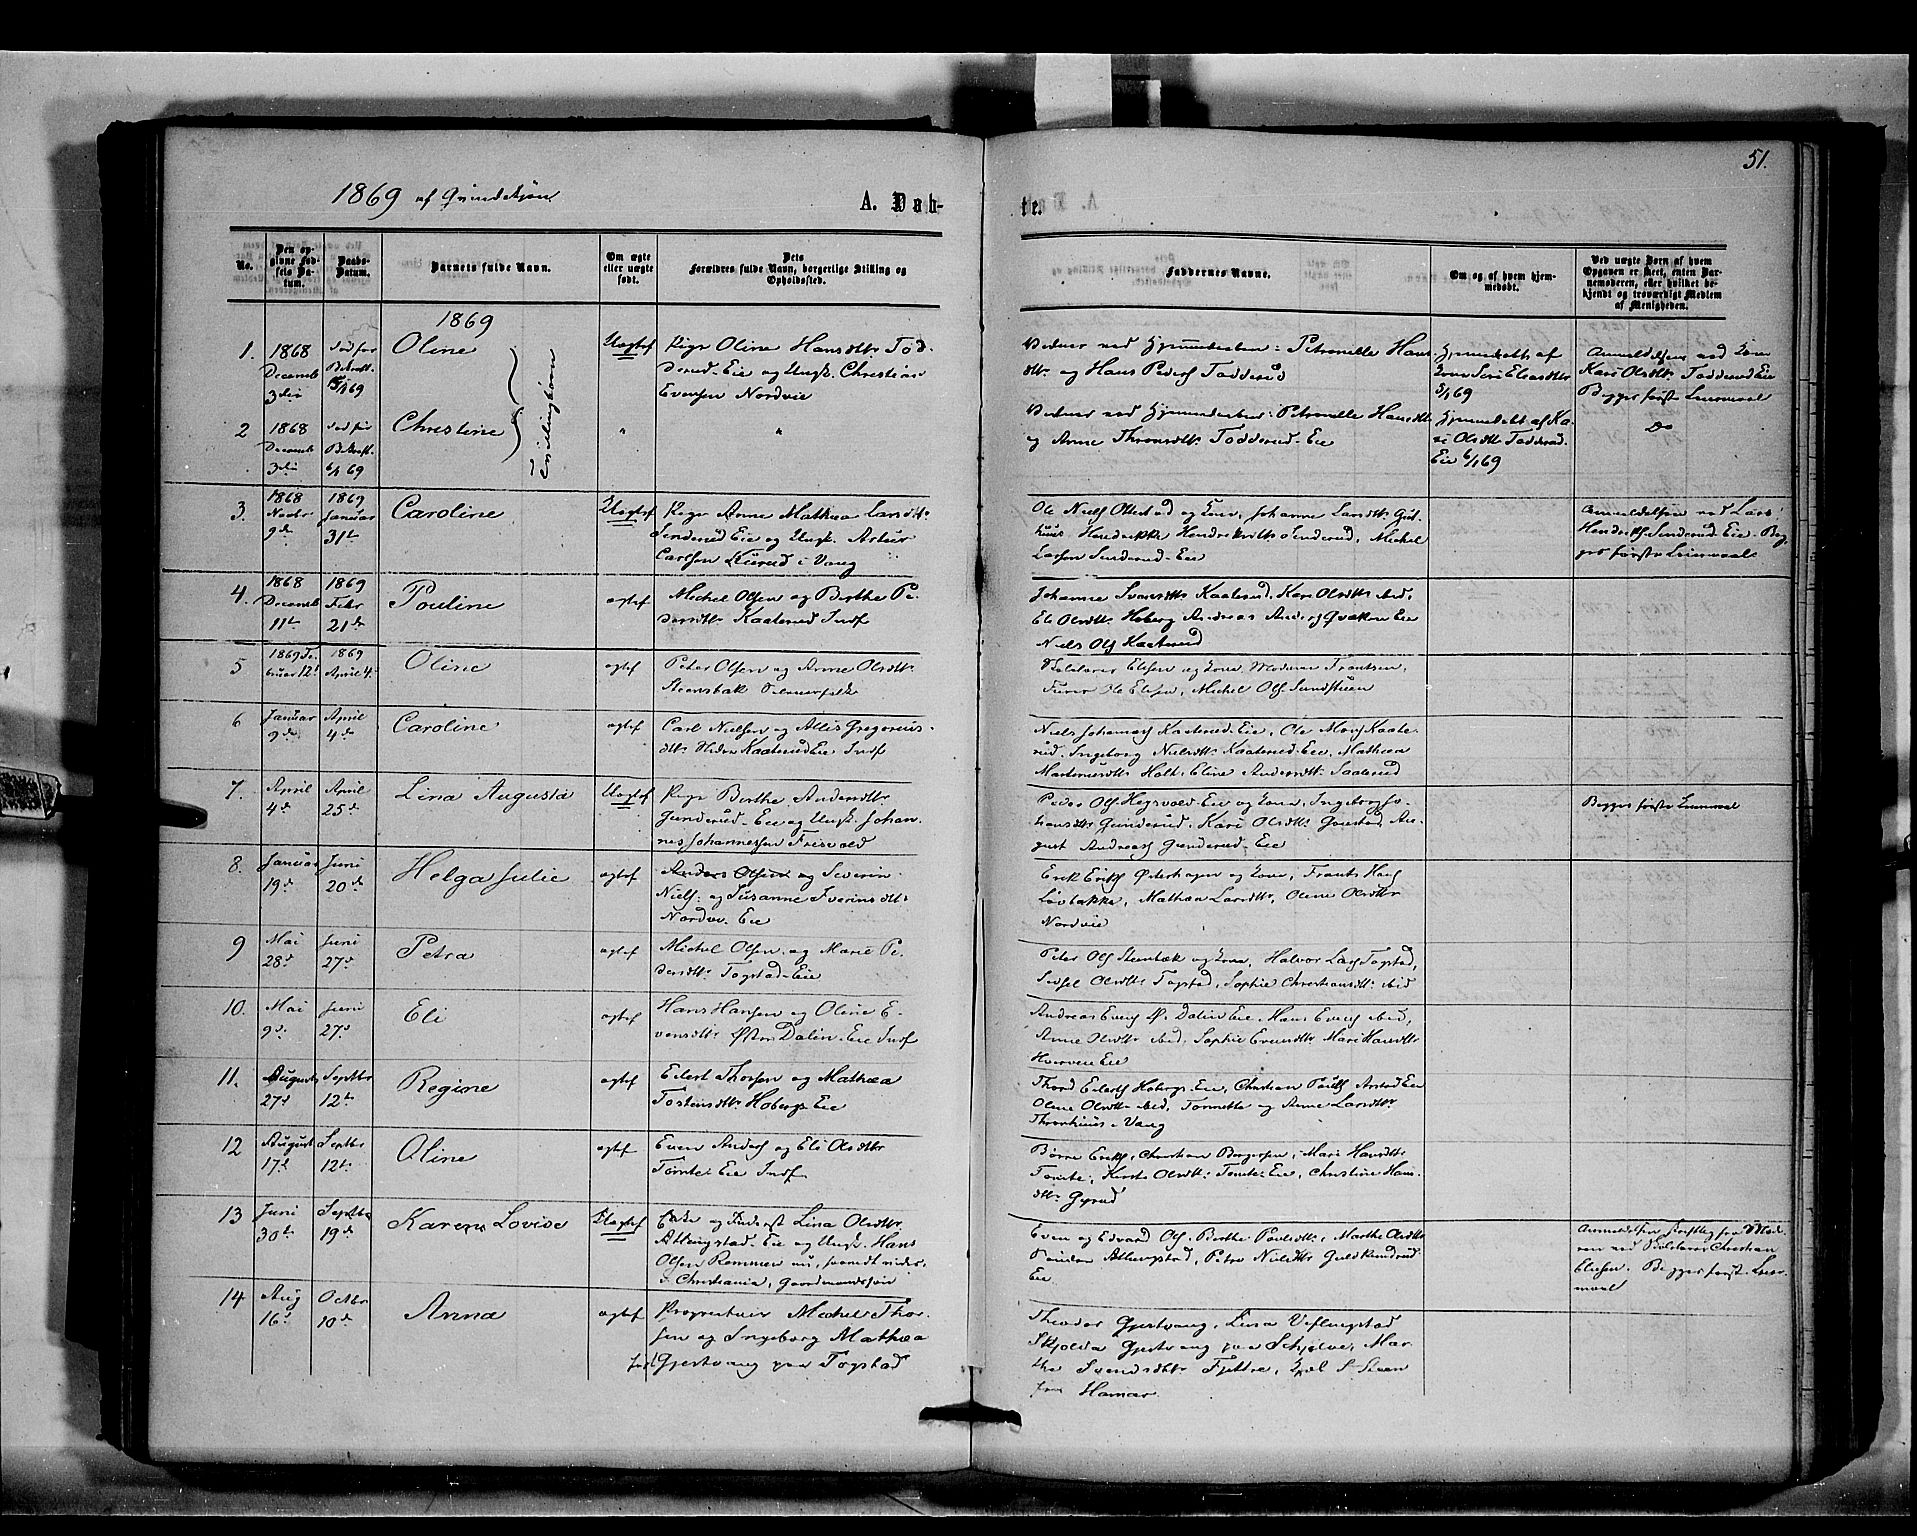 51.
1869 af Qvindekjøn
A. Døb-
te.
No.
Den op-
givne Fød-
sels Da-
tum.
Daabs-
Datum.
Barnets fulde Navn.
Om ægte
eller uægte
født.
Dets
Forældres fulde Navn, borgerlige Stilling og
Opholdssted.
Faddernes Navne.
Om og af hvem hjem-
medøbt.
Ved uægte Børn af hvem
Opgaven er skeet, enten Bar-
nemoderen, eller hvilket be-
kjendt og troværdigt Medlem
af Menigheden.
1869
1. 1868
Decemb
3die
Oline
Tvillingbørn
Uægtef
Pige Oline Hansdttr Tod-
derud-Eie og Ungk. Christian
Evensen Nordvie
Petronelle Hans
dttr og Hans Peders Todderud
Hjemmedøbt af
5/1 69
Anmeldelsen ved Kone
Kari Olsdttr Todderud Eie
Begges første Leiermaal
2 1868
Decemb
3die
6/1 69
Christine
"
"
Petronelle Hansdttr
og Anne Thronsdttr Todderud-Eie
Hjemmedøbt af Ka-
ri Olsdttr Todderud-
Eie 6/1 69
Do
3. 1868
Novbr
9de
1869
Januar
31te
Caroline
Uægtef
Pige Anne Mathea Larsdttr
Sinderud Eie og Ungk. Anton
Carlsen i Vang
Ole Niels Ottestad og Kone, Johanne Larsdttr
Hendrikke Hendriksdttr Sinderud, Michel
Larsen Sinderud-Eie
Anmeldelsen ved Lars
Hendriks Sinderud-Eie. Beg-
ges første Leiermaal
4. 1868
Decemb
11te
1869
Febr
21de
Pouline
ægtef
Michel Olsen og Berthe Pe-
dersdttr Kaaterud Indf
Johanne Svensdttr Kaaterud, Kari Olsdttr ibid,
Eli Olsdttr Hoberg Andreas Anders Eie
Niels Ols Kaaterud
5 1869 Fe-
bruar 12te
1869
April 4.
Oline
ægtef
Peter Olsen og Anne Olsdttr
Steensbæk
Skolelærer Eliesen og Kone, Frantsen,
Ole Eliesen, Michel Ols
6 Januar
9de
April
4de
Caroline
ægtef
Carl Nielsen og Allis Gregorius-
dttr Kaaterud Eie Indf
Niels Johannes Kaaterud Eie, Ole Kaate-
rud, Ingeborg Nielsdttr Kaaterud-Eie, Mathea
Martinusdttr Holt, Eline Andersdttr
7 April
4de
April
25de
Lina Augusta
Uægtef
Pige Berthe Andersdttr
Gunderud-Eie og Ungk. Johan-
nes Johannessen
Peder Ols Hegsvold-Eie og Kone, Ingeborg Jo-
hansdttr Gunderud, Kari Olsdttr Au-
gust Andreas Gunderud-Eie
Begges første Leiermaal
8. Januar
19de
Juni
20de
Helga Julie
ægtef
Anders Olsen og Severin
Niels. og Susanne Iverinsdttr
Nordvi-Eie
Erik Eriks Østerhagen og Kone, Frants Hans
Løvbakke, Mathea Larsdttr, Oline Olsdttr
Nordvie
9 Mai
28de
Juni
27de
Petra
ægtef
Michel Olsen og Marie Pe-
dersdttr Togstad-Eie
Peter Ols Steensbæk og Kone, Halvor Lars Togstad,
Sidsel Olsdttr Togstad, Sophie Christiansdttr ibid
10. Mai
9de
Juni
27de
Eli
ægtef
Hans Hansen og Oline E-
vensdttr Øster Dalin-Eie Indf
Andreas Evens Ø. Dalin Eie, Hans Evens ibid,
Anne Olsdttr ibid, Sophie Evensdttr Mari Hansdttr
11. August
27de
Septbr
12te
Regine
ægtef
Eilert Thorsen og Mathea
Tostensdttr Hoberg-Eie
Thord Eilerts Hobergs-Eie, Christian Pouls Arstad Eie
Oline Olsdttr ibid, Tonnette og Anne Larsdttr
i Vang
12 August
17de
Septbr
12te
Oline
ægtef
Even Anders og Eli Olsdttr
Tomte-Eie Indf
Børre Eriks, Christian Borgersen, Mari Hansdttr
Tomte, Kirsti Olsdttr Tomte-Eie, Christine Hans-
dttr Gyrud
13 Juni
30te
Septbr
19de
Karen Lovise
Uægtef
Lina Olsdttr
Attingstad-Eie og Ungk. Hans
Olsen Remmen
i Christiania, Gaardmandssøn
Even og Edvard Ols, Berthe Poulsdttr, Marthe Olsdttr
Petra Nielsdttr
Eie
Anmeldelsen skriftlig fra Mod-
eren ved Skolelærer Christian
Eliesen. Begges første Leier-
maal
14 Aug
16de
Octbr
10de
Anna
ægtef
Proprietair Michel Thor-
sen og Ingeborg Mathea
født Gjestvang paa Togstad
Theodor Gjestvang, Lina
Skjolda Gjestvang paa Mar-
the Svendsdttr Fjetre, S. Steen
fra Hamar